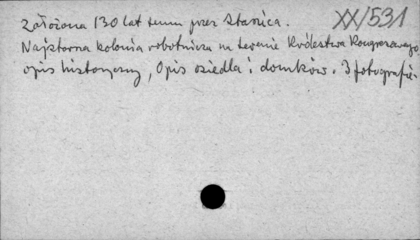 XX/531
Założona 130 lat temu przez Stasica.
Najstarsza kolonia robotnicza na terenie Królestwa Kongresowego
opis historyczny, Opis osiedla i domków. 3 fotografie.